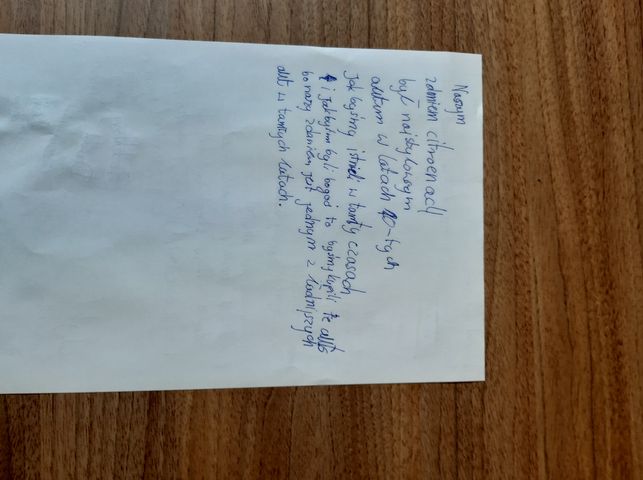 Naszym
zdaniem citroen ad1
był najstylowszym
autem w latach 10-tych
Jak byśmy istnieli w tamty czasach
i jak byśmy byli bogaci to byśmy kupili te auto
bo naszy zdaniem jest jednym z ładniejszych
aut w tamtych latach.